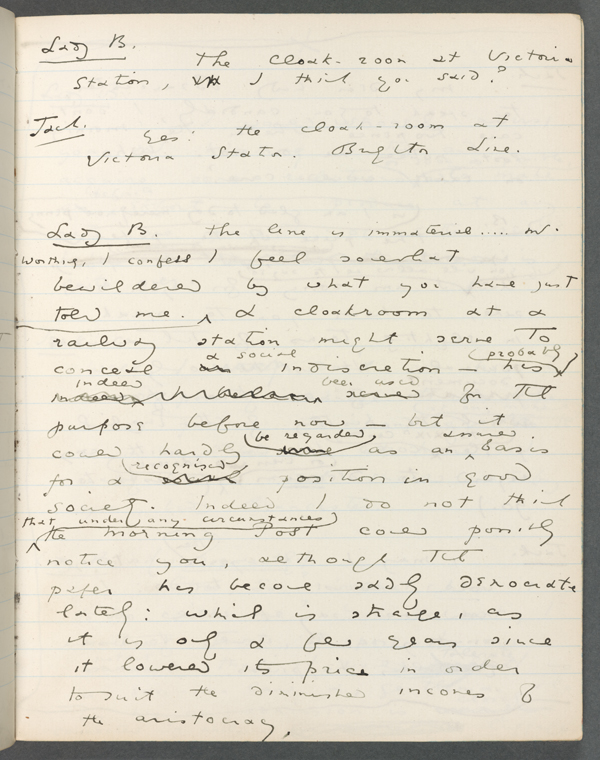 Lady B.
The cloak-room at Victoria
Station, I think you said?
Jack.
Yes: the cloak-room at
Victoria Station. Brighton Line.
Lady B. The line is immaterial..... Mr.
Worthing, I confess I feel somewhat
bewildered by what you have just
told me. A cloakroom at a
railway station might serve to
a social (probably)
conceal indiscretion – has
indeed been used
indeed served for that
purpose before now – but it
be regarded assured
could hardly as an basis
recognised
for a position in good
society. Indeed I do not think
that under any circumstances
the Morning Post could possibly
notice you, although that
paper has become sadly democratic
lately: which is strange, as
it is only a few years since
it lowered its price in order
to suit the diminished incomes of
the aristocracy.